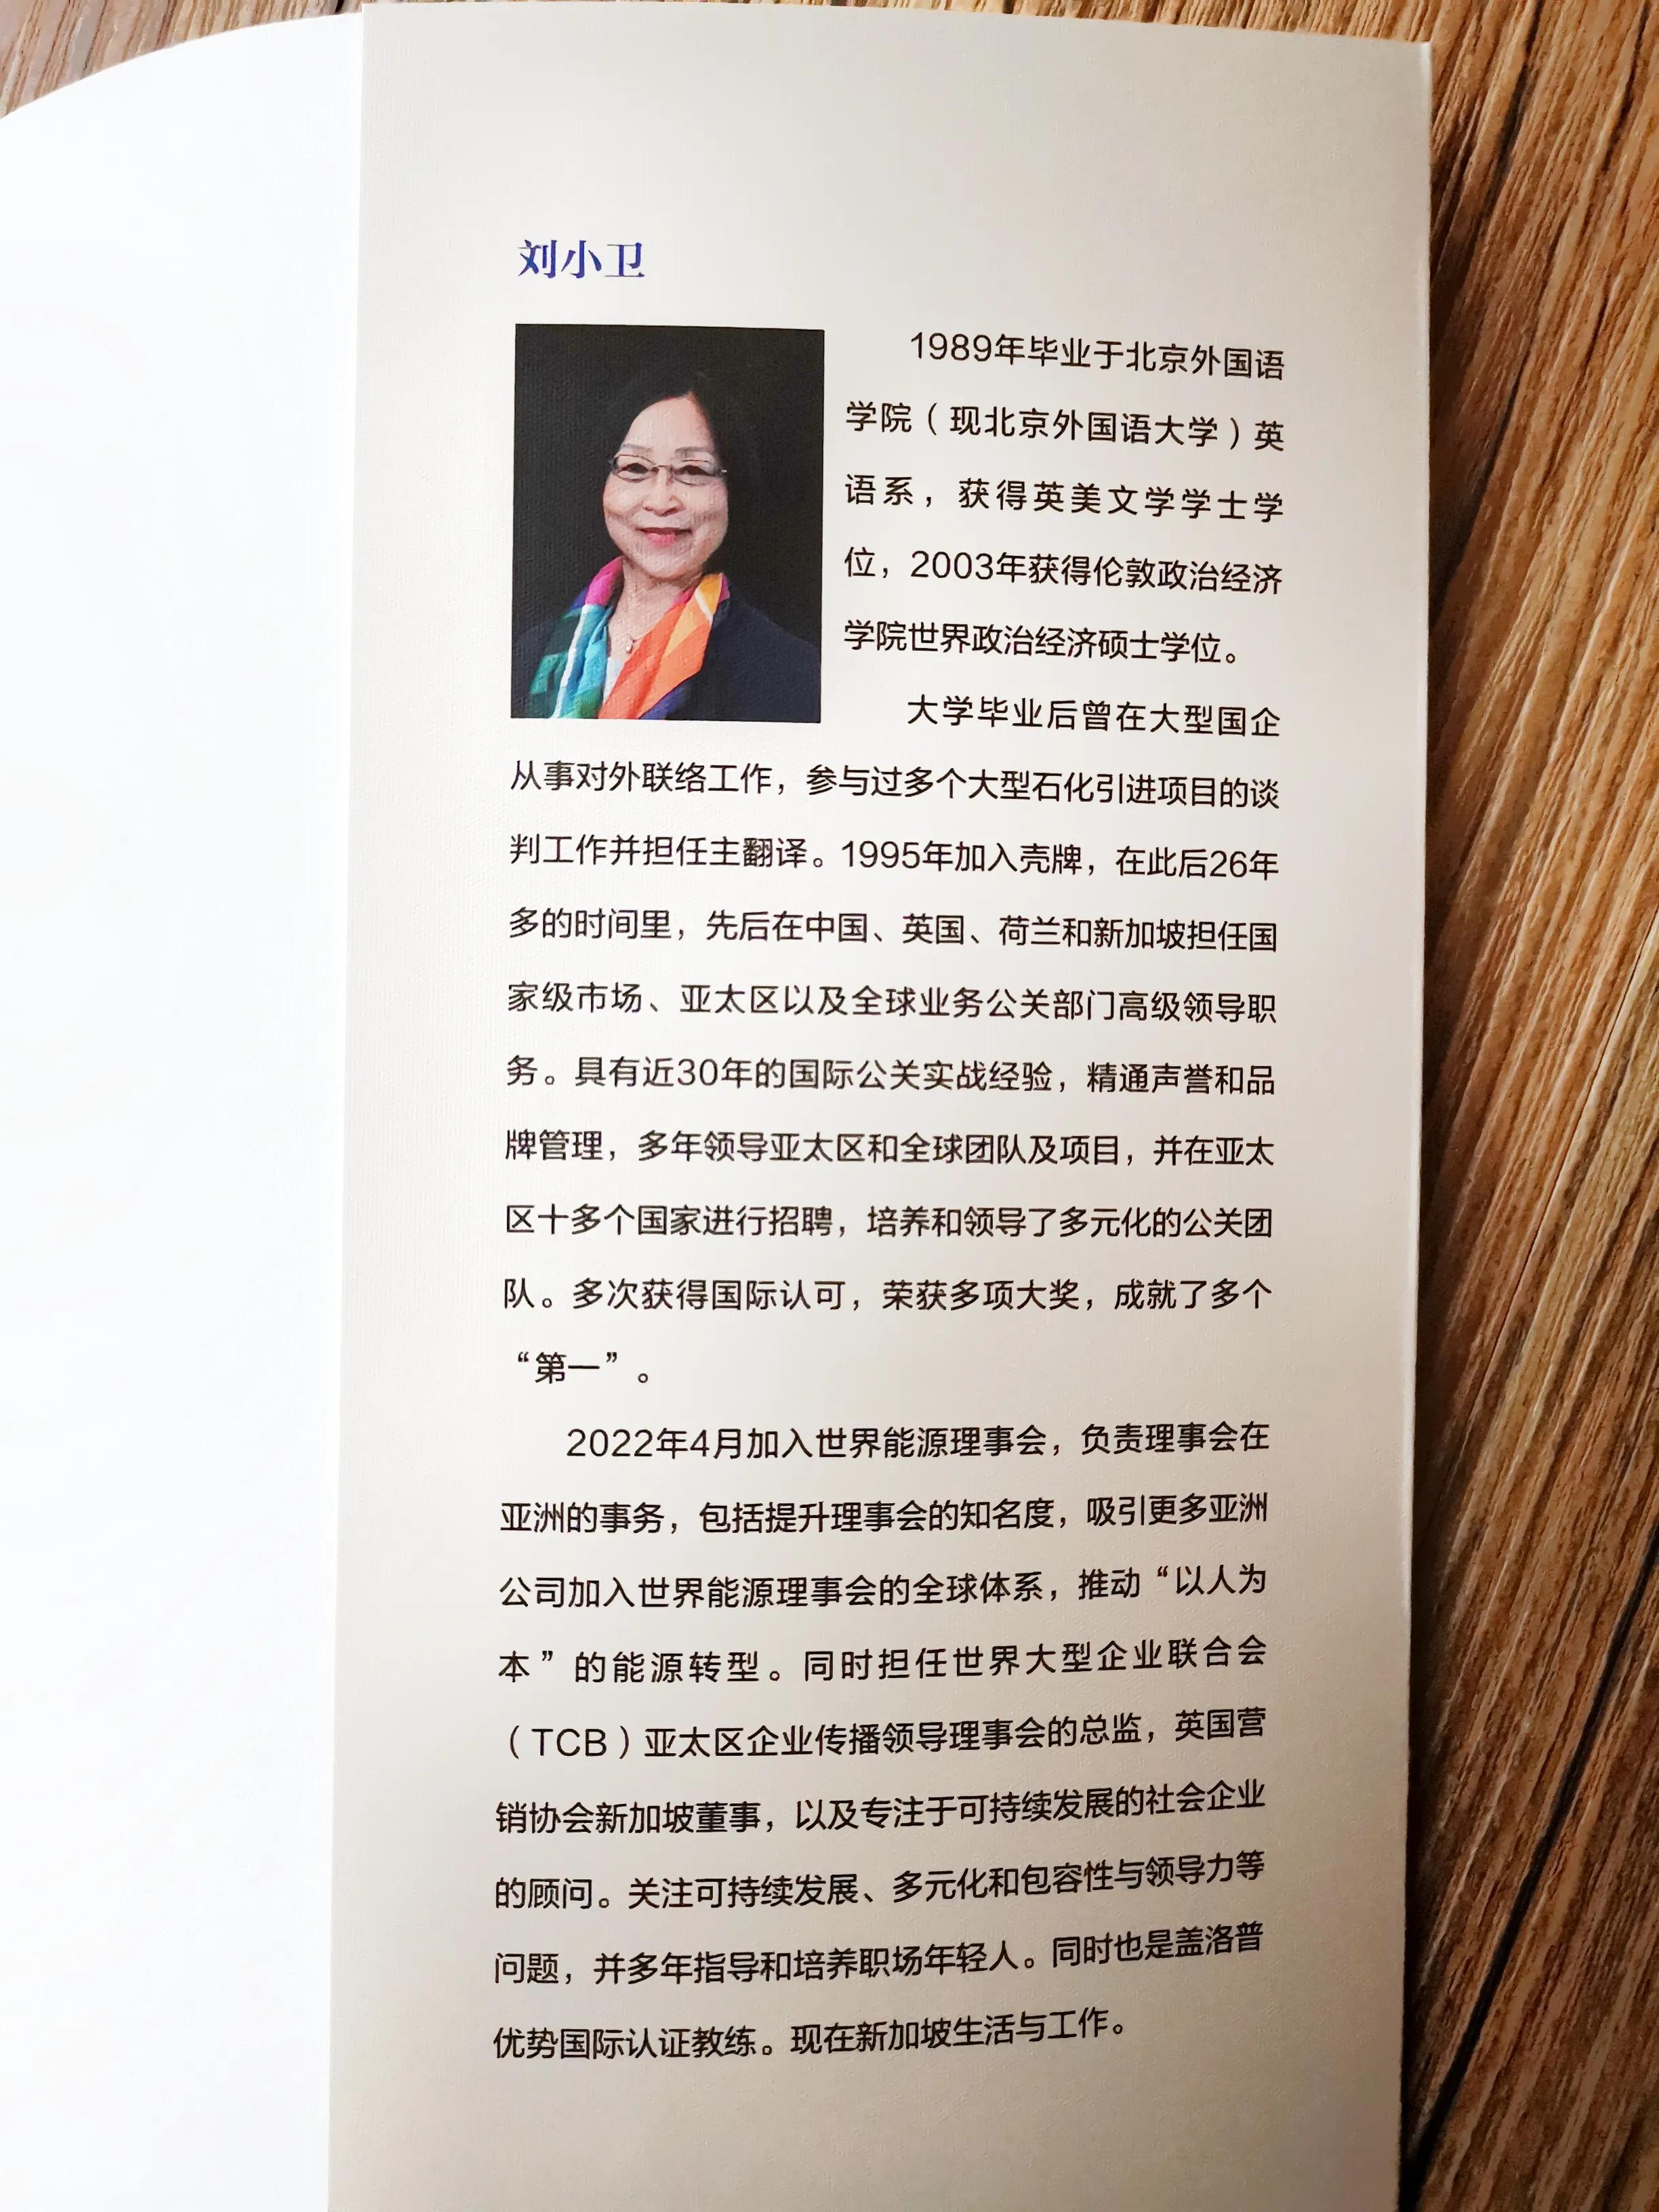 刘小卫
1989年毕业于北京外国语
学院（现北京外国语大学）英
语系，获得英美文学学士学
位，2003年获得伦敦政治经济
学院世界政治经济硕士学位。
大学毕业后曾在大型国企
从事对外联络工作，参与过多个大型石化引进项目的谈
判工作并担任主翻译。1995年加入壳牌，在此后26年
多的时间里，先后在中国、英国、荷兰和新加坡担任国
家级市场、亚太区以及全球业务公关部门高级领导职
务。具有近30年的国际公关实战经验，精通声誉和品
牌管理，多年领导亚太区和全球团队及项目，并在亚太
区十多个国家进行招聘，培养和领导了多元化的公关团
队。多次获得国际认可，荣获多项大奖，成就了多个
“第一”。
2022年4月加入世界能源理事会，负责理事会在
亚洲的事务，包括提升理事会的知名度，吸引更多亚洲
公司加入世界能源理事会的全球体系，推动“以人为
本”的能源转型。同时担任世界大型企业联合会
（TCB）亚太区企业传播领导理事会的总监，英国营
销协会新加坡董事，以及专注于可持续发展的社会企业
的顾问。关注可持续发展、多元化和包容性与领导力等
问题，并多年指导和培养职场年轻人。同时也是盖洛普
优势国际认证教练。现在新加坡生活与工作。